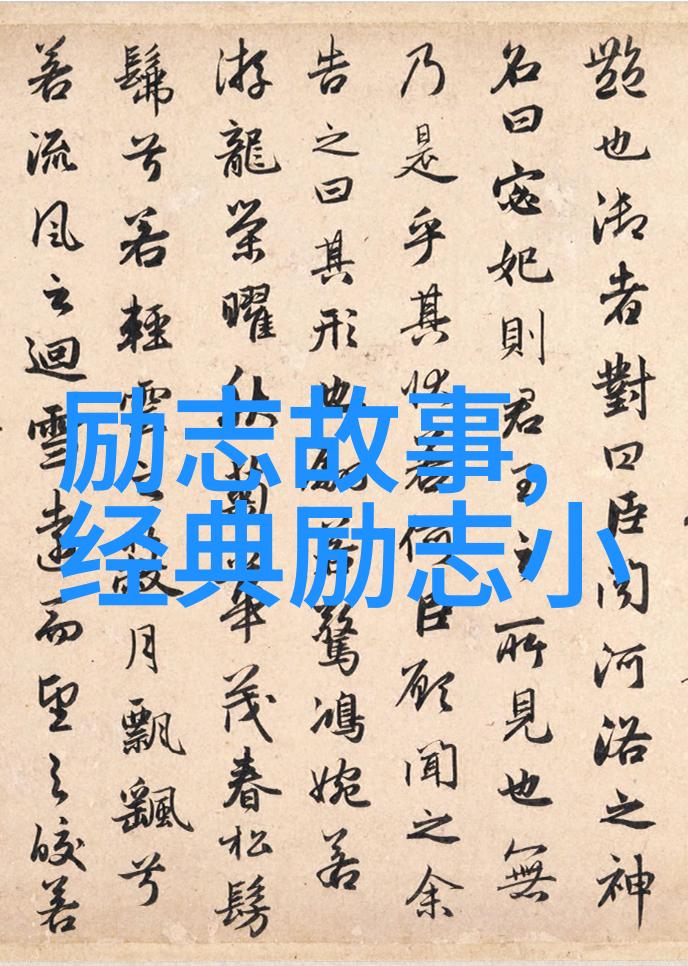 励志故事,
经典励志小
艷也御者對曰臣聞河洛之神
名曰宓妃則君王之所見也無
乃是乎其狀若何臣願聞之余
告之曰其形也翩若驚鴻婉若
游龍榮曜秋菊華茂春松髣
髴兮若輕雲之蔽月飄颻兮
若流風之迴雪遠而望之皎若